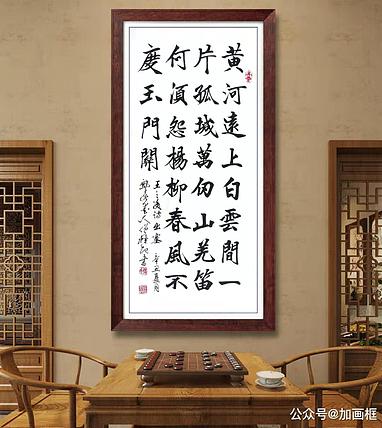 黄河遠上白雲間一
片孤城萬仞山羌笛
何須怨楊柳春風不
度玉門關
王之渙詩出塞 辛丑夏月
公众号@加画框